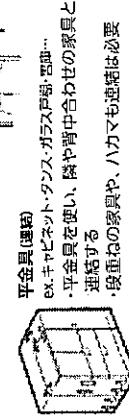 平金具(連結)
ex.キャビネット・タンス・ガラス戸棚・書庫…
・平金具を使い、隣や背中合わせの家具と
連結する
・段重ねの家具や、ハカマも連結は必要